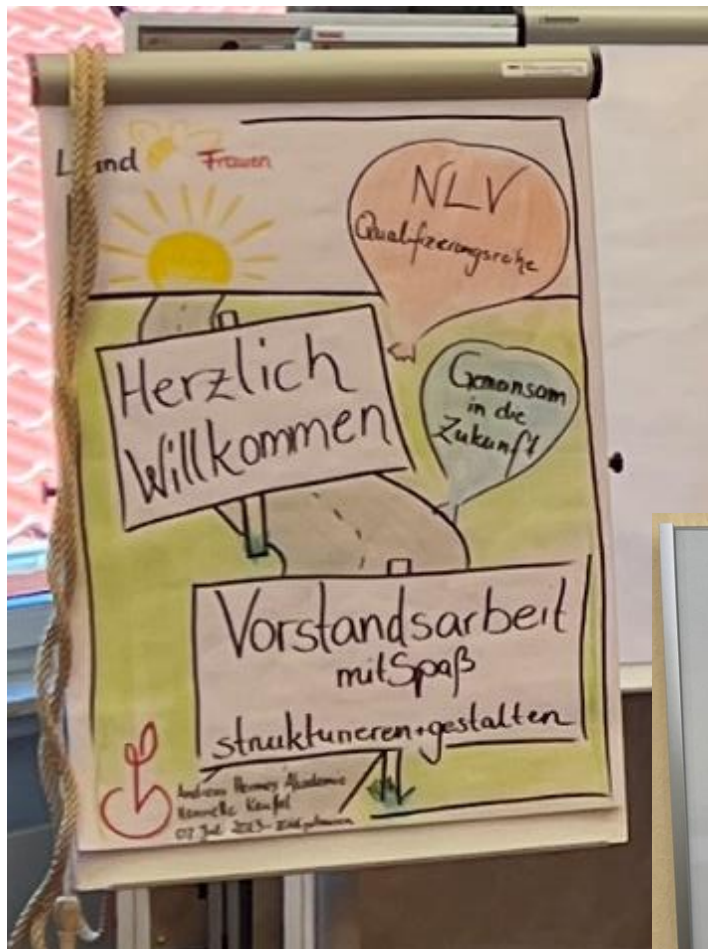 Land Frauen
NLV
Qualifizierungsreihe
Herzlich
Willkommen
Gemeinsam
in die
Zukunft
Vorstandsarbeit
mit Spaß
strukturieren + gestalten
Andreas Hermes Akademie